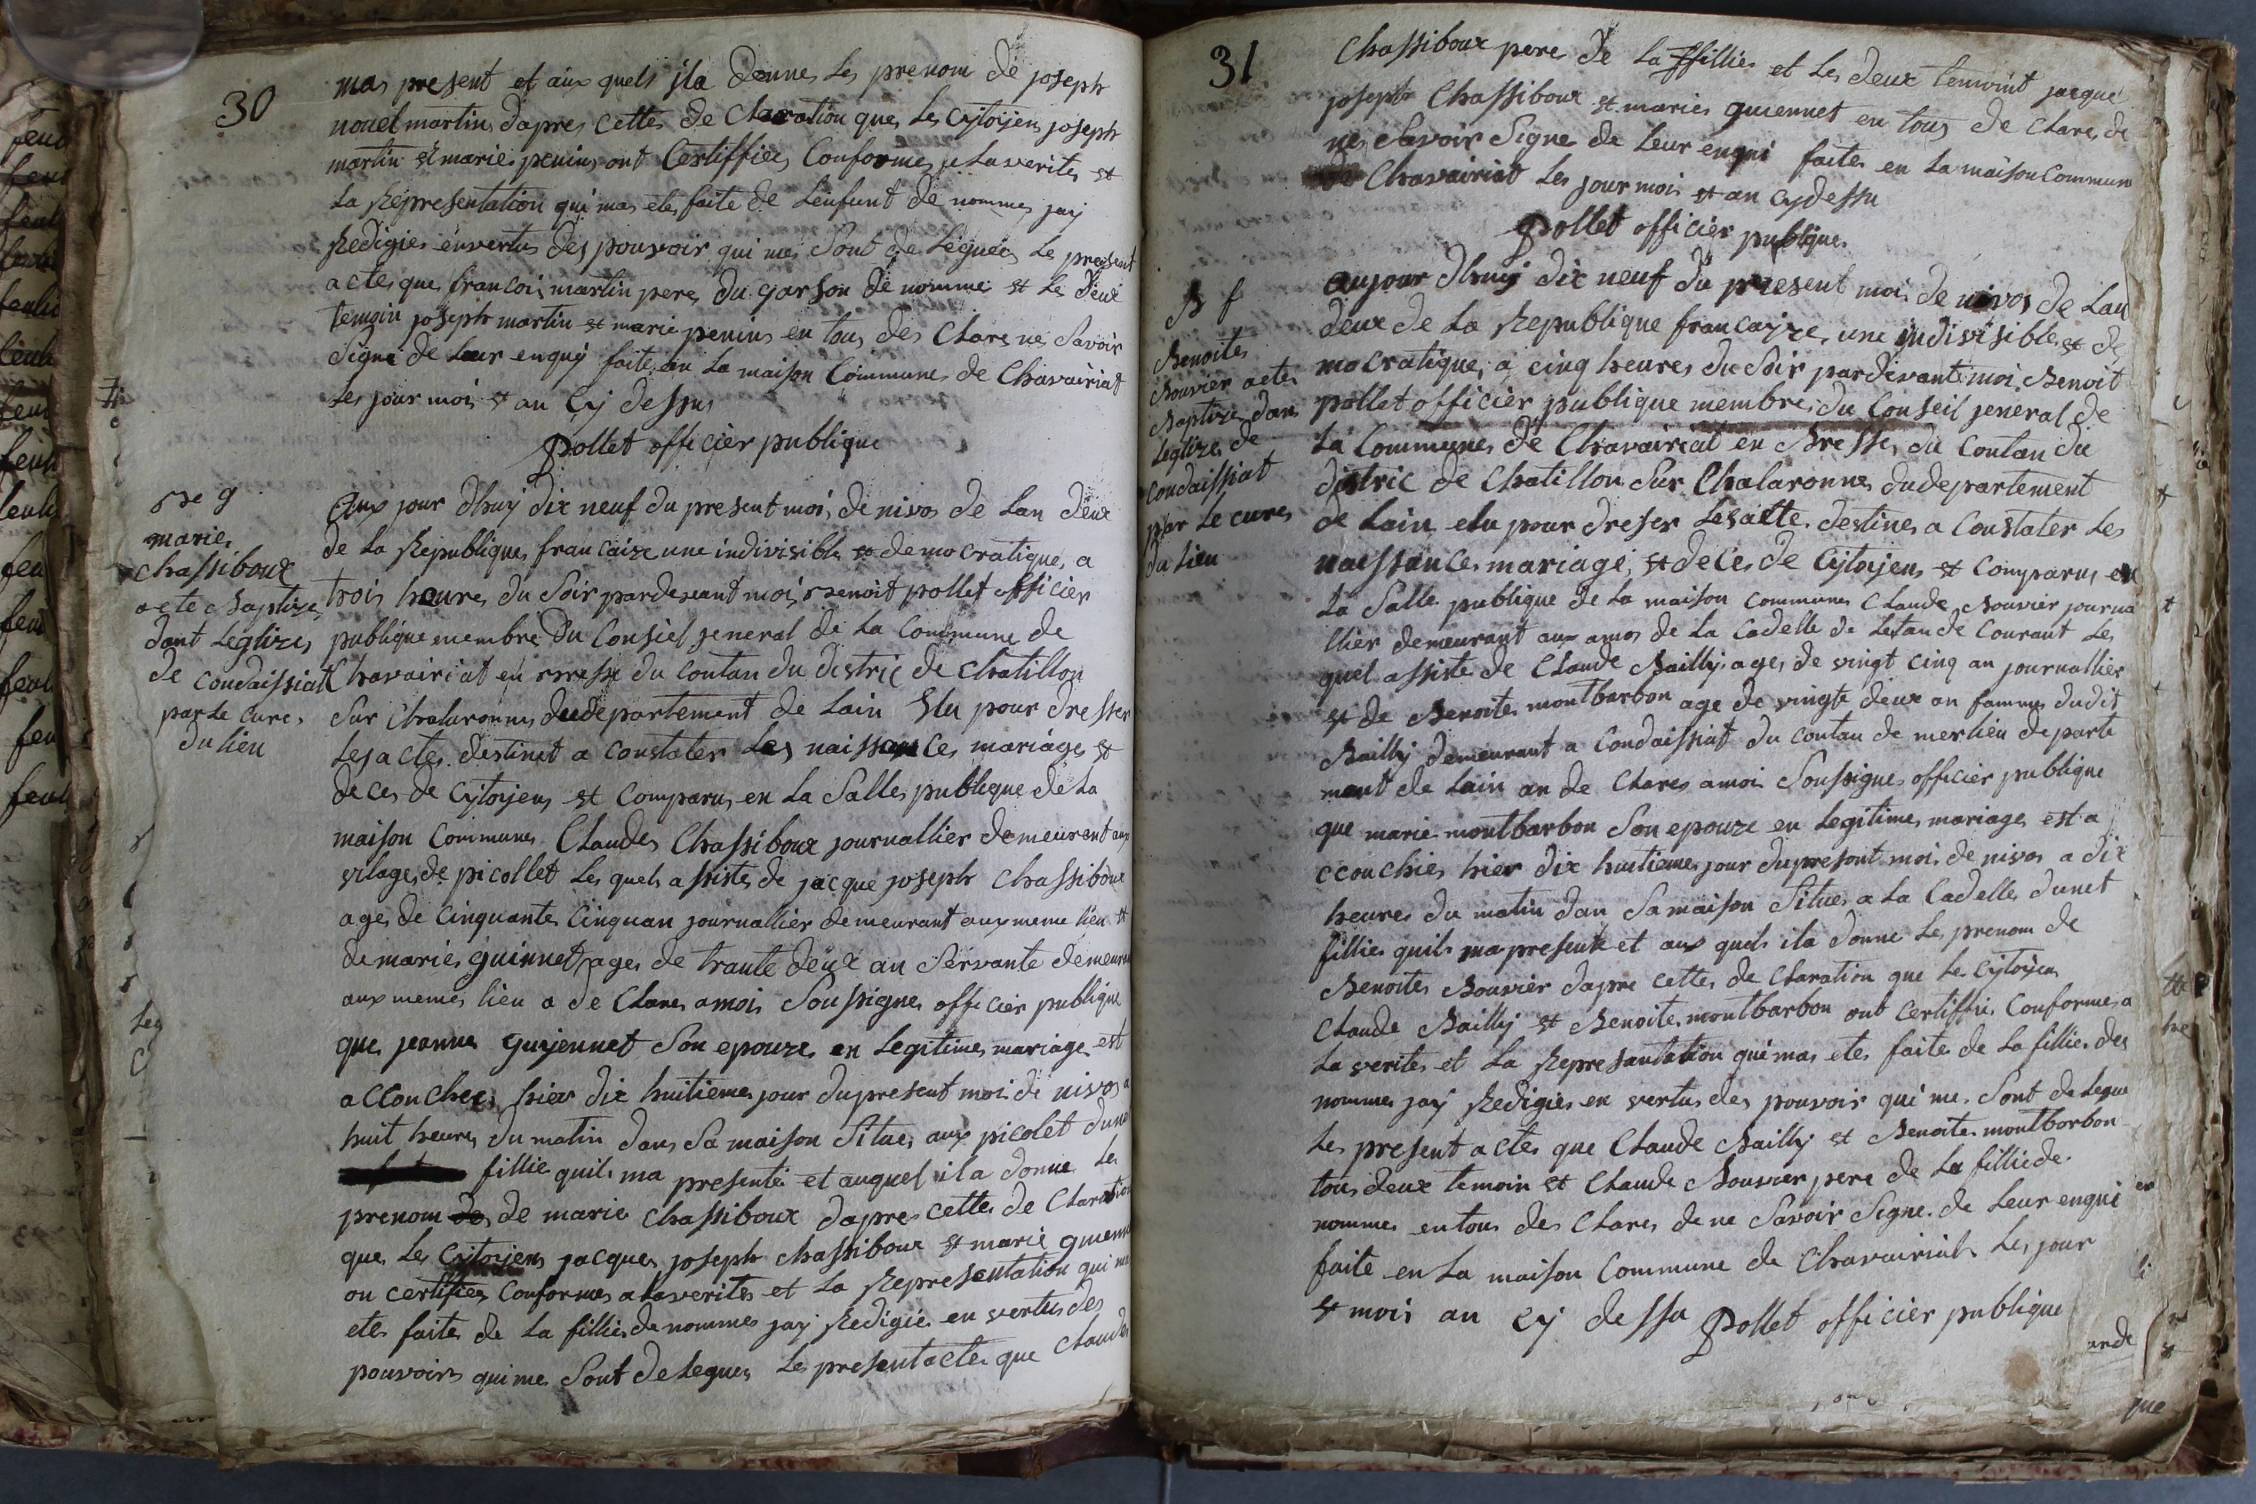 30
mas present et aux quels ila donnes les prenom de joseph
nouel martin dapres cettes de Claration ques les Cytoyens joseph
martin et maries penins ont Certiffies Conformes a Laverites et
La Representation qui mas etes faite de Lenfant de nommes jay
Redigies envertus des pouvoir qui mes Sont de Legués Le present
actes ques francois martin peres du garson de nommes et Les deux
temoin joseph martin et marie penins en tous des Clare nes Savoir
Signé de Leur enquy faite en La maison Communes de Chavairiat
Les jour mois et an Cy dessus
pollet officier publique
maries
Chassiboux
acte Baptize
dant Leglizes
de Condaissiat
par Le Cure
du lieu
aux jour dhuy dix neuf du present mois de nivos de Lan deux
de La Republiques francaize une indivisible et democratique, a
trois heures du Soir pardevant moi Benoit pollet officier
publique membre du Consiel jeneral de La Commune de
Chavairiat en Bresse du Contan du distric de Chatillon
Sur Chalaronnes dudepartement de Lain Elu pour dresser
Lesactes destinet a Constater Les naissances mariages et
deces de Cytoyens et Comparus en La Salles publique de La
maison Communes Claudes Chassiboux journallier demeurent aux
vilages de picollet Les quels assistes de jacque joseph Chassiboux
ages de Cinquantes Cinquan journallier demeurant aux meme lieu et
de maries guinnet ages de trante deux an Servante demeurant
aux memes lieu a de Clares amois Soussignes officier publique
que jeanne guyennet Son epouzes en Legitimes mariages est
accouchees hier dix huitiemes jour dupresent mois de nivos a
huit heures du matin dans Sa maison Situes aux picolet dune
fillie quils ma presentes et auquel ila donne Les
prenom de marie Chassiboux dapres cettes de Claration
que Les Cytoyens jacques joseph Chassiboux et marie
on certifies Conformes alaverites et La Representation qui
etes faites de La fillies de nommes jay Redigié en vertus des
pouvoirs quime Sont delegues Le present actes que Claudes
31
Chassiboux peres de La ffillies et Les deux temoint jacque
joseph Chassiboux et maries guiennet en tous de Clares de
nes Savoir Signes de Leur enqui faites en La maison Commun
de Chavairiat Les jour mois et an Cydessu
pollet officier publique
Benoites
Bouvier actes
Baptize dans
Leglizes de
Condaissiat
par Le cures
du lieu
aujour dhuy dix neuf du present mois de nivos de Lan
deux de La Republique francayze, une indivisibles et de
mocratique, a cinq heures du Soir pardevant moi Benoit
pollet officier publique membres du Conseil jeneral de
La Communes de Chavairiat en Bresses du Contan du
distric de Chatillon Sur Chalaronnes dudepartement
de Lain elu pour dreser Lesactes destines a Constater Les
naissances mariage, et deces de Cytoyens et Comparus en
La Salle publique de La maison Communes Claude Bouvier journa
llier demeurant aux amos de La Cadelle de Letan de Courant Les
quel assiste de Claude Bailly ages de vingt cinq an journallier
et de Benoites montbarbon age de vingte deux an fammes dudit
Bailly demeurant a Condaissiat du Contau de merlieu departe
ment de Lain an de Clares amoi Soussignes officier publique
que marie montbarbon Son epouze en Legitimes mariages est a
ccouchies hier dix huitiemes jour dupresent mois de nivos a dix
heures du matin dan Sa maison Situes a La Cadelles dunet
fillies quils ma presente et aux quels ila donne Les prenom de
Benoites Bouvier dapre cettes de Claration que Les Cytoyen
Claude Bailly et Benoites montbarbon ont certiffies Conformes a
La verites et La Represantation quimas etes faites de La fillies des
nommes jay Redigies en vertus des pouvoir qui mes Sont delegue
Les present actes que Claude Bailly et Benoites montborbon
tous deux temoin et Claude Bouvier pere de La fillie de
nommes entous des Clares de ne Savoir Signe de Leur enqui
faite en La maison Commune de Chavairiat Les jour
et mois an Cy dessu pollet officier publique